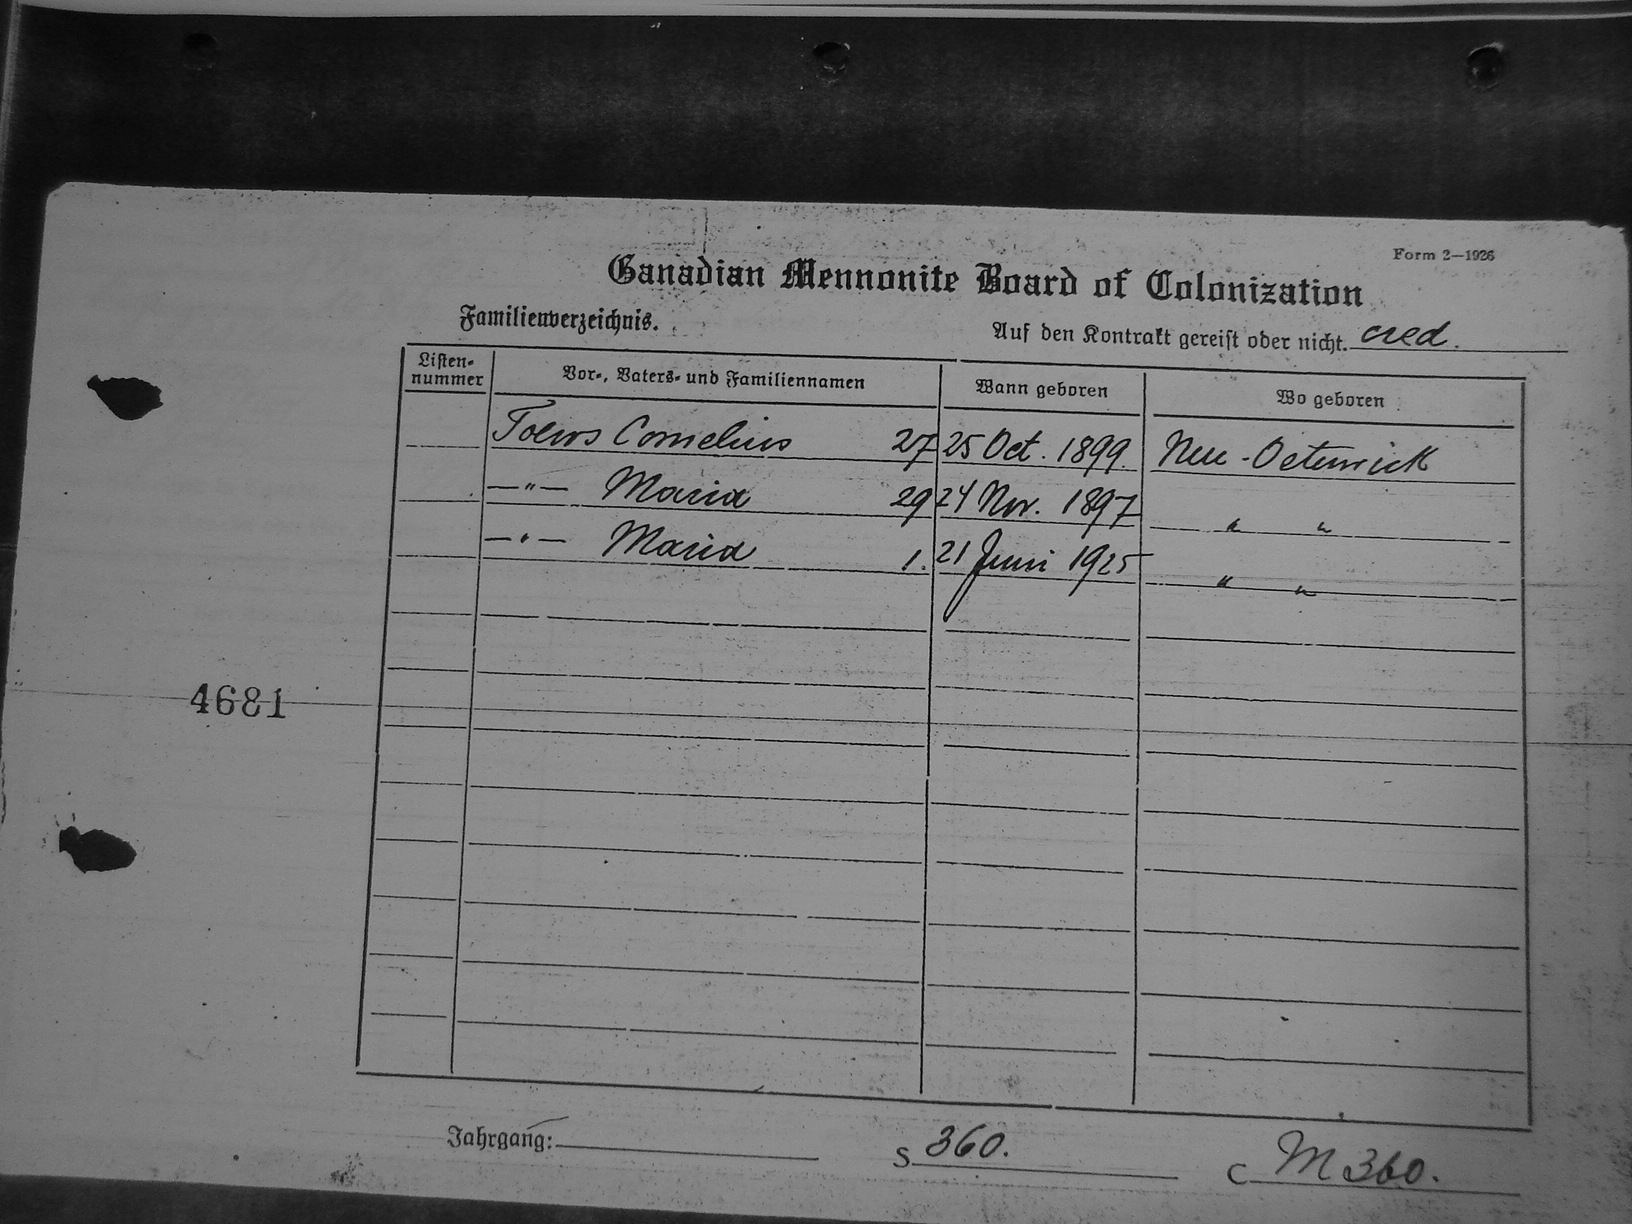 Form 2—1926
Canadian Mennonite Board of Colonization
Familienverzeichnis.
Auf den Kontrakt gereist oder nicht. cred.
Listen-nummer Vor-, Vaters- und Familiennamen Wann geboren Wo geboren
Toews Cornelius 27 25 Oct. 1899. Neu-Osterwick
—"— Maria 29 24 Nov. 1897 " "
—"— Maria 1. 21 Juni 1925 " "
4681
Jahrgang: S 360. C M 360.